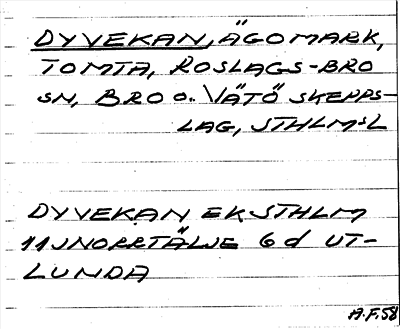 DYVEKAN, ÄGOMARK,
TOMTA, ROSLAGS-BRO
SN, BRO O. VÄTÖ SKEPPS-
LAG, STHLMSL
DYVEKAN EKSTHLM
11JNORRTÄLJE 6d UT-
LUNDA
A.F.58